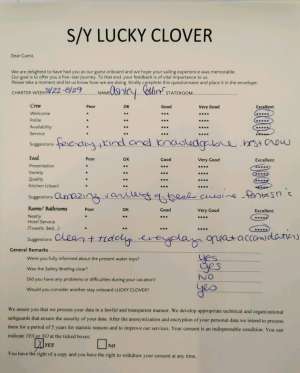 S/Y LUCKY CLOVER
Dear Guest,
We are delighted to have had you as our guest onboard and we hope your sailing experience was memorable.
Our goal is to offer you a five-star journey. To that end, your feedback is of vital importance to us.
Please take a moment and let us know how we are doing. Kindly complete this questionnaire and place it in the envelope.
CHARTER WEEK: 8/22-8/29 NAME: Ashley STATEROOM:
Crew Poor OK Good Very Good Excellent
Welcome • •• ••• •••• •••••
Polite • •• ••• •••• •••••
Availability • •• ••• •••• •••••
Service • •• ••• •••• •••••
Suggestions: friendly, kind and knowledgable, best crew
Food Poor OK Good Very Good Excellent
Presentation • •• ••• •••• •••••
Variety • •• ••• •••• •••••
Quality • •• ••• •••• •••••
Kitchen Island • •• ••• •••• •••••
Suggestions: amazing variety of cuisine
Rooms/ Bathrooms Poor OK Good Very Good Excellent
Neatly • •• ••• •••• •••••
Hotel Service • •• ••• •••• •••••
(Towels, Bed...) • •• ••• •••• •••••
Suggestions: clean + tiddy everyday, great accomidations
General Remarks
Were you fully informed about the present water toys? yes
Was the Safety Briefing clear? yes
Did you have any problems or difficulties during your vacation? NO
Would you consider another stay onboard LUCKY CLOVER? yes
We assure you that we process your data in a lawful and transparent manner. We develop appropriate technical and organizational
safeguards that ensure the security of your data. After the anonymization and encryption of your personal data we intend to process
them for a period of 5 years for statistic reasons and to improve our services. Your consent is an indispensable condition. You can
indicate YES or NO at the ticked boxes:
YES NO
You have the right of a copy and you have the right to withdraw your consent at any time.